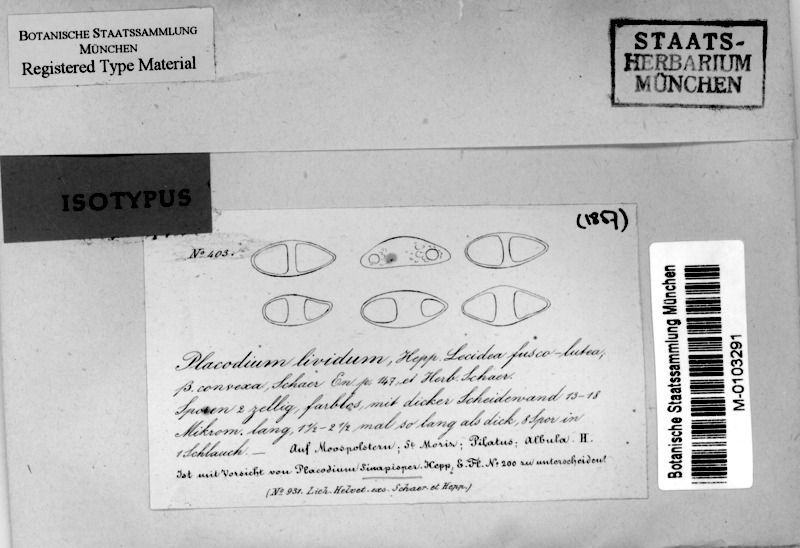 BOTANISCHE STAATSSAMMLUNG
MÜNCHEN
Registered Type Material
STAATS-
HERBARIUM
MÜNCHEN
ISOTYPUS
(1857)
No 403.
Placodium lividum, Hepp. Lecidea fusco-lutea,
β. convexa, Schaer En. p. 147. et Herb. Schaer.
Sporen 2 zellig, farblos, mit dicker Scheidewand 13-18
Mikrom. lang, 1½-2½ mal so lang als dick, 8 Spor in
1 Schlauch. — Auf Moospolstern; St Moriz; Pilatus; Albula. H.
Ist mit Vorsicht von Placodium Sinapisper. Hepp. E. Fl. No 200 zu unterscheiden!
(No 931. Lich. Helvet. exs. Schaer. et Hepp.)
Botanische Staatssammlung München
M-0103291